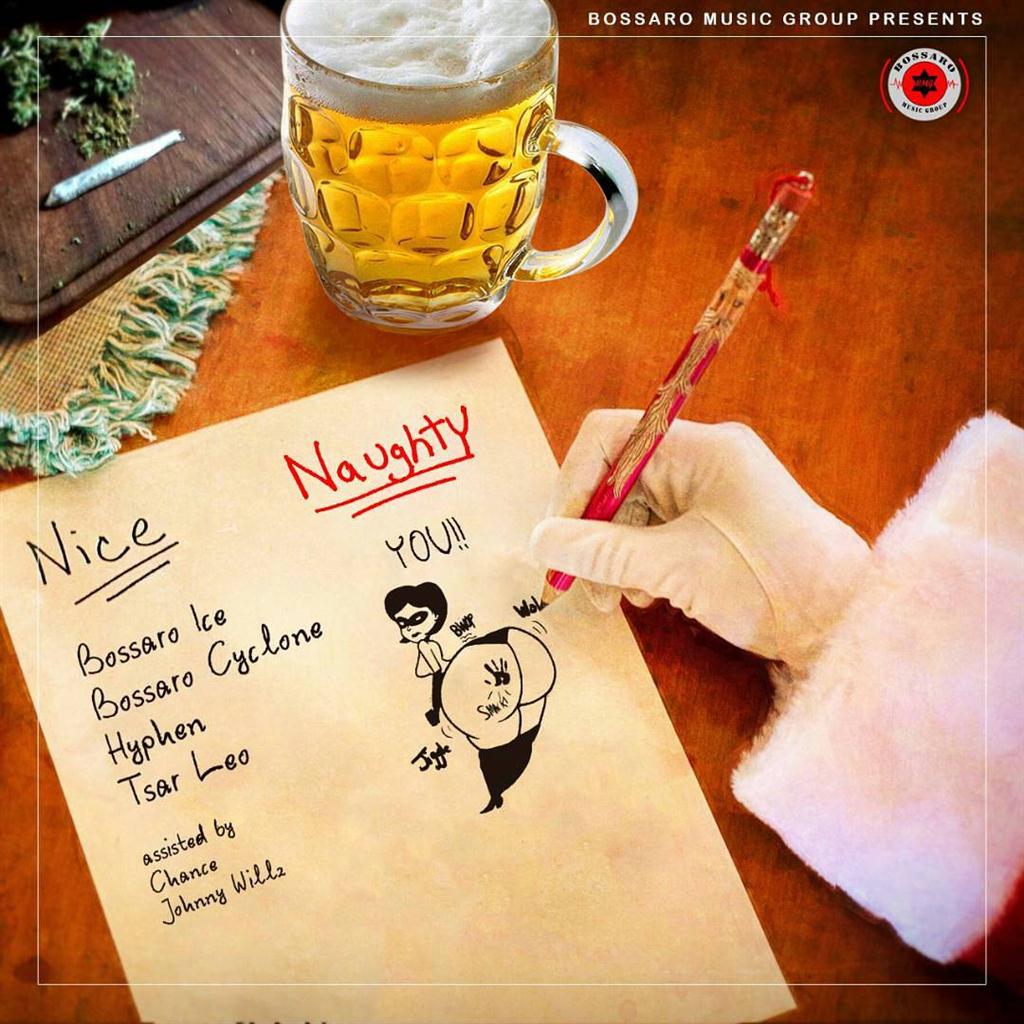 BOSSARO MUSIC GROUP PRESENTS
BOSSARO
MUSIC GROUP
Naughty
Nice
YOU!!
Bossaro Ice
Bossaro Cyclone
Hyphen
Tsar Leo
assisted by
Chance
Johnny Willz
Jiggle